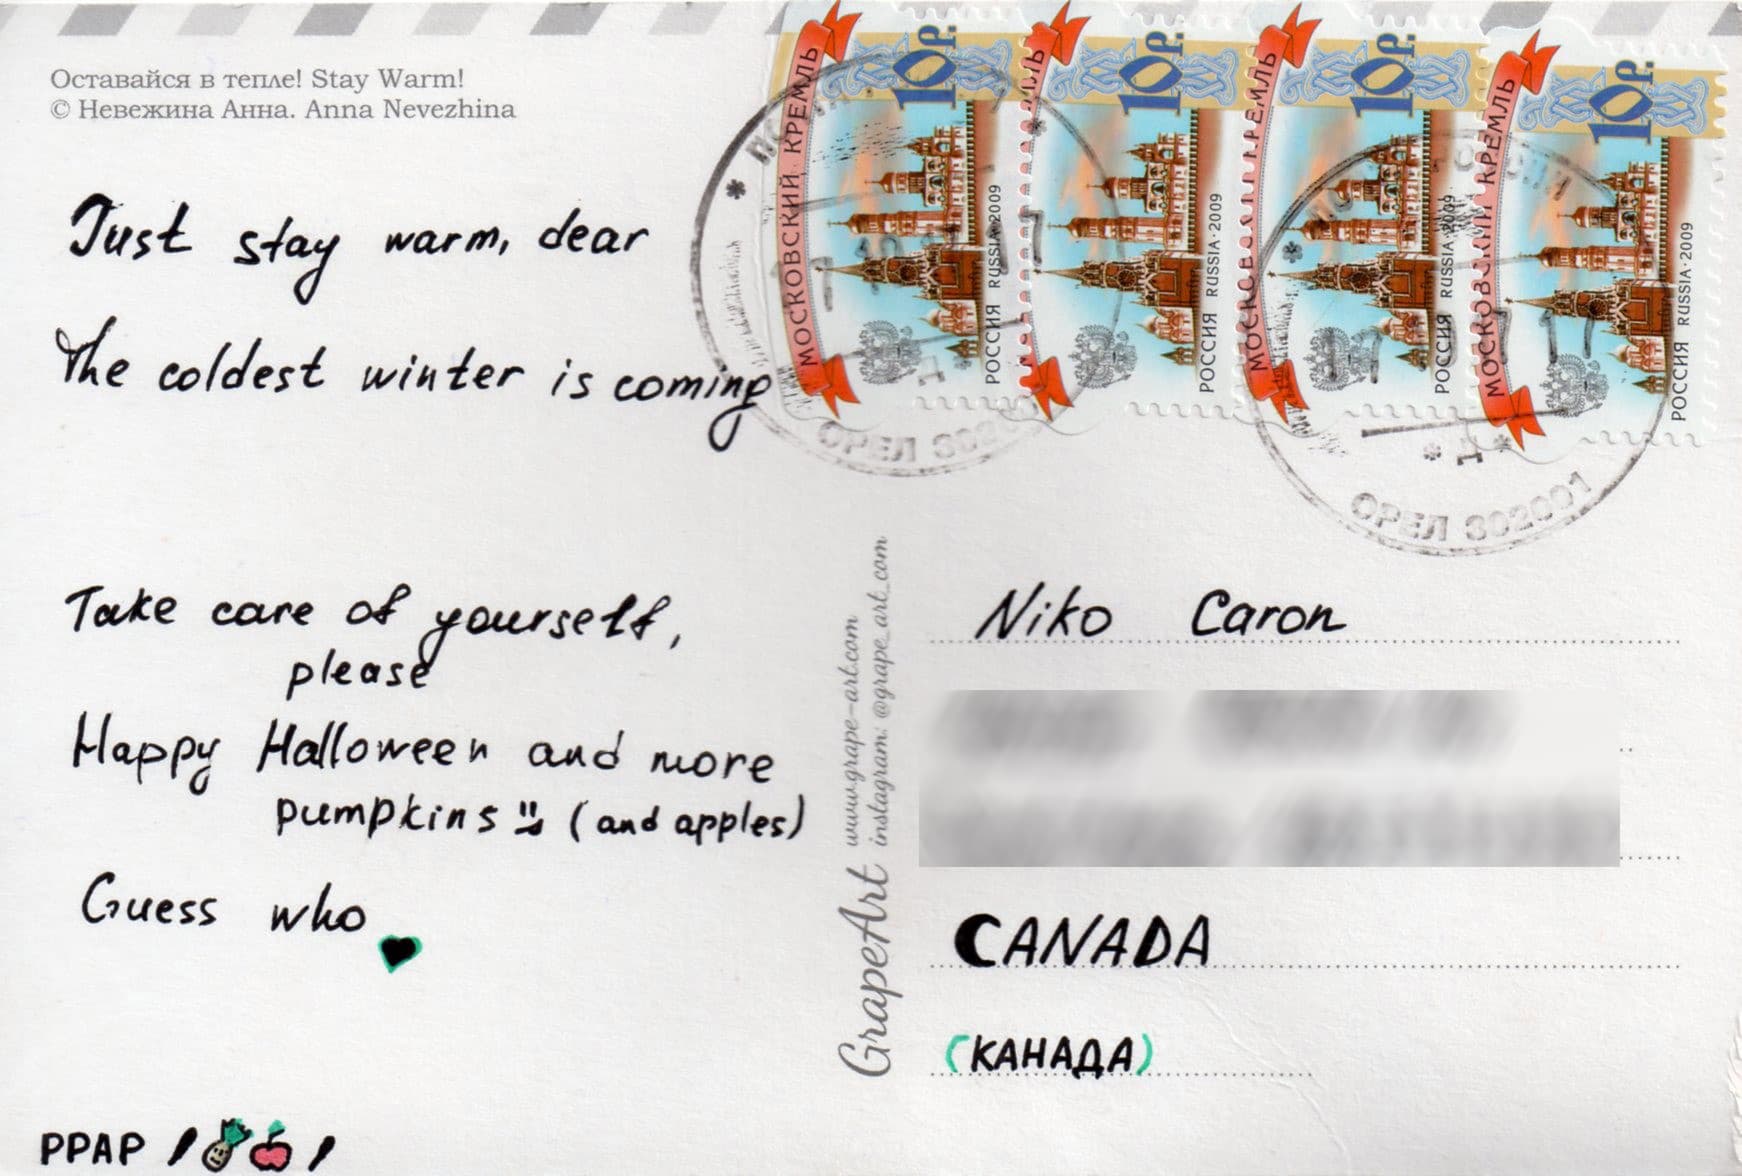 Оставайся в тепле! Stay Warm!
© Невежина Анна. Anna Nevezhina
Just stay warm, dear
The coldest winter is coming
Take care of yourself,
please
Happy Halloween and more
pumpkins (and apples)
Guess who
PPAP
GrapeArt
www.grape-art.com
instagram: @grape_art_com
МОСКОВСКИЙ КРЕМЛЬ
10р.
РОССИЯ RUSSIA·2009
10р.
РОССИЯ RUSSIA·2009
МОСКОВСКИЙ КРЕМЛЬ
10р.
РОССИЯ RUSSIA·2009
МОСКОВСКИЙ КРЕМЛЬ
10р.
РОССИЯ RUSSIA·2009
ОРЕЛ
ОРЕЛ 302001
Niko Caron
CANADA
(КАНАДА)